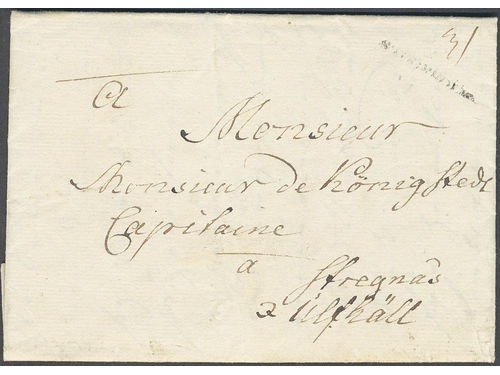 3/
a
Monsieur
Monsieur de Königstedt
Capitaine
a
Stregnäs
Ulfhäll